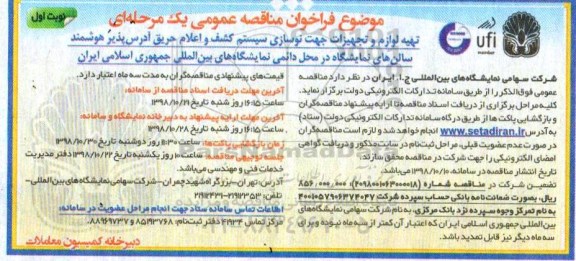 نوبت اول
موضوع فراخوان مناقصه عمومی یک مرحله‌ای
تهیه لوازم و تجهیزات جهت نوسازی سیستم کشف و اعلام حریق آدرس‌پذیر هوشمند
سالن‌های نمایشگاه در محل دائمی نمایشگاه‌های بین‌المللی جمهوری اسلامی ایران
ufi
شرکت سهامی نمایشگاه‌های بین‌المللی ج.ا. ایران در نظر دارد مناقصه
عمومی فوق‌الذکر را از طریق سامانه تدارکات الکترونیکی دولت برگزار نماید.
کلیه مراحل برگزاری از دریافت اسناد مناقصه تا ارایه پیشنهاد مناقصه‌گران
و بازگشایی پاکت‌ها از طریق درگاه سامانه تدارکات الکترونیکی دولت (ستاد)
به آدرس www.setadiran.ir انجام خواهد شد و لازم است مناقصه‌گران
در صورت عدم عضویت قبلی، مراحل ثبت‌نام در سایت مذکور و دریافت گواهی
امضای الکترونیکی را جهت شرکت در مناقصه محقق سازند.
تاریخ انتشار مناقصه در سامانه، ۱۳۹۸/۱۰/۱۰ می‌باشد.
تضمین شرکت در مناقصه شماره (۲۰۹۸۰۰۱۰۶۳۰۰۰۰۱۸) ۸۵۶,۰۰۰,۰۰۰
ریال، بصورت ضمانت‌نامه بانکی حساب سپرده شرکت
به نام تمرکز وجوه سپرده نزد بانک مرکزی، به نام شرکت سهامی نمایشگاه‌های
بین‌المللی جمهوری اسلامی ایران که اعتبار آن کمتر از سه ماه نبوده و برای
سه ماه دیگر نیز قابل تمدید باشد.
قیمت‌های پیشنهادی مناقصه‌گران به مدت سه ماه اعتبار دارد.
آخرین مهلت دریافت اسناد مناقصه از سامانه:
ساعت ۱۶:۱۵ روز شنبه تاریخ ۱۳۹۸/۱۰/۱۴
آخرین مهلت ارایه پیشنهاد به دبیرخانه نمایشگاه و سامانه:
ساعت ۱۶:۱۵ روز شنبه تاریخ ۱۳۹۸/۱۰/۲۸
زمان بازگشایی پاکت‌ها: ساعت ۱۱:۳۰ روز دوشنبه تاریخ ۱۳۹۸/۱۰/۳۰
جلسه توجیهی: ساعت ۱۰ روز یکشنبه تاریخ ۱۳۹۸/۱۰/۲۲ دفتر مدیریت
خدمات فنی و مهندسی می‌باشد.
آدرس: تهران-بزرگراه شهید چمران-شرکت سهامی نمایشگاه‌های بین‌المللی-
تلفن:
اطلاعات تماس سامانه ستاد جهت انجام مراحل عضویت در سامانه:
مرکز تماس ۴۱۹۳۴ دفتر ثبت‌نام: ۸۵۱۹۳۷۶۸ و ۸۸۹۶۹۷۳۷
دبیرخانه کمیسیون معاملات